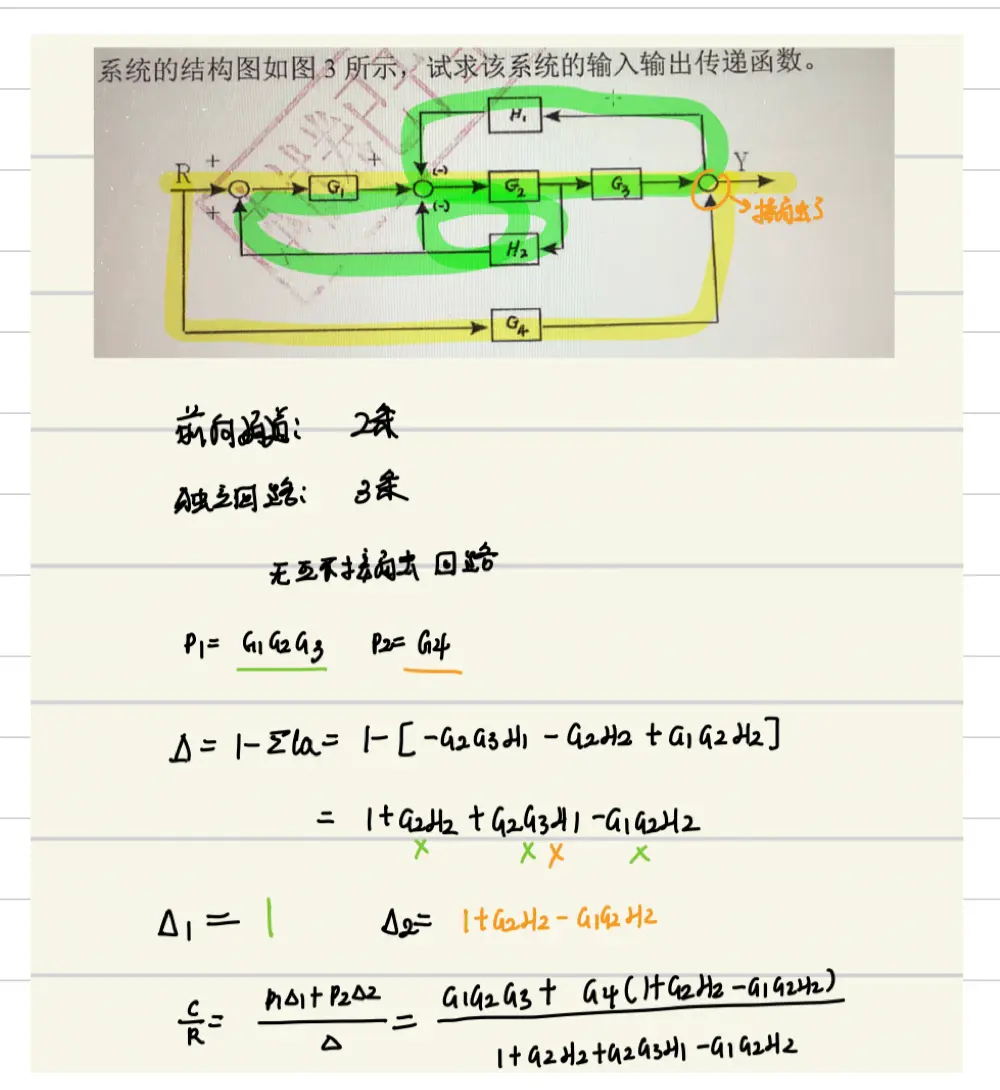 系统的结构图如图 3 所示，试求该系统的输入输出传递函数。
H₁
R + + (-) Y
G₁ G₂ G₃
+ (-) 接触了
H₂
G₄
前向通道: 2条
独立回路: 3条
无互不接触回路
P₁= G₁G₂G₃ P₂= G₄
Δ = 1-Σla= 1-[-G₂G₃H₁ - G₂H₂ + G₁G₂H₂]
= 1+G₂H₂ + G₂G₃H₁ -G₁G₂H₂
x x x x
Δ₁ = 1 Δ₂= 1+G₂H₂ - G₁G₂H₂
C/R = P₁Δ₁+P₂Δ₂/Δ = G₁G₂G₃ + G₄(1+G₂H₂-G₁G₂H₂)/1+G₂H₂+G₂G₃H₁-G₁G₂H₂